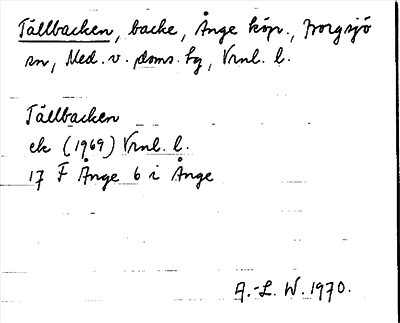 Tällbacken, backe, Ånge köp., Borgsjö
sn, Med. v. doms. hg, Vrnl. l.
Tällbacken
ek (1969) Vrnl. l.
17 F Ånge 6 i Ånge
A.-L. W. 1970.